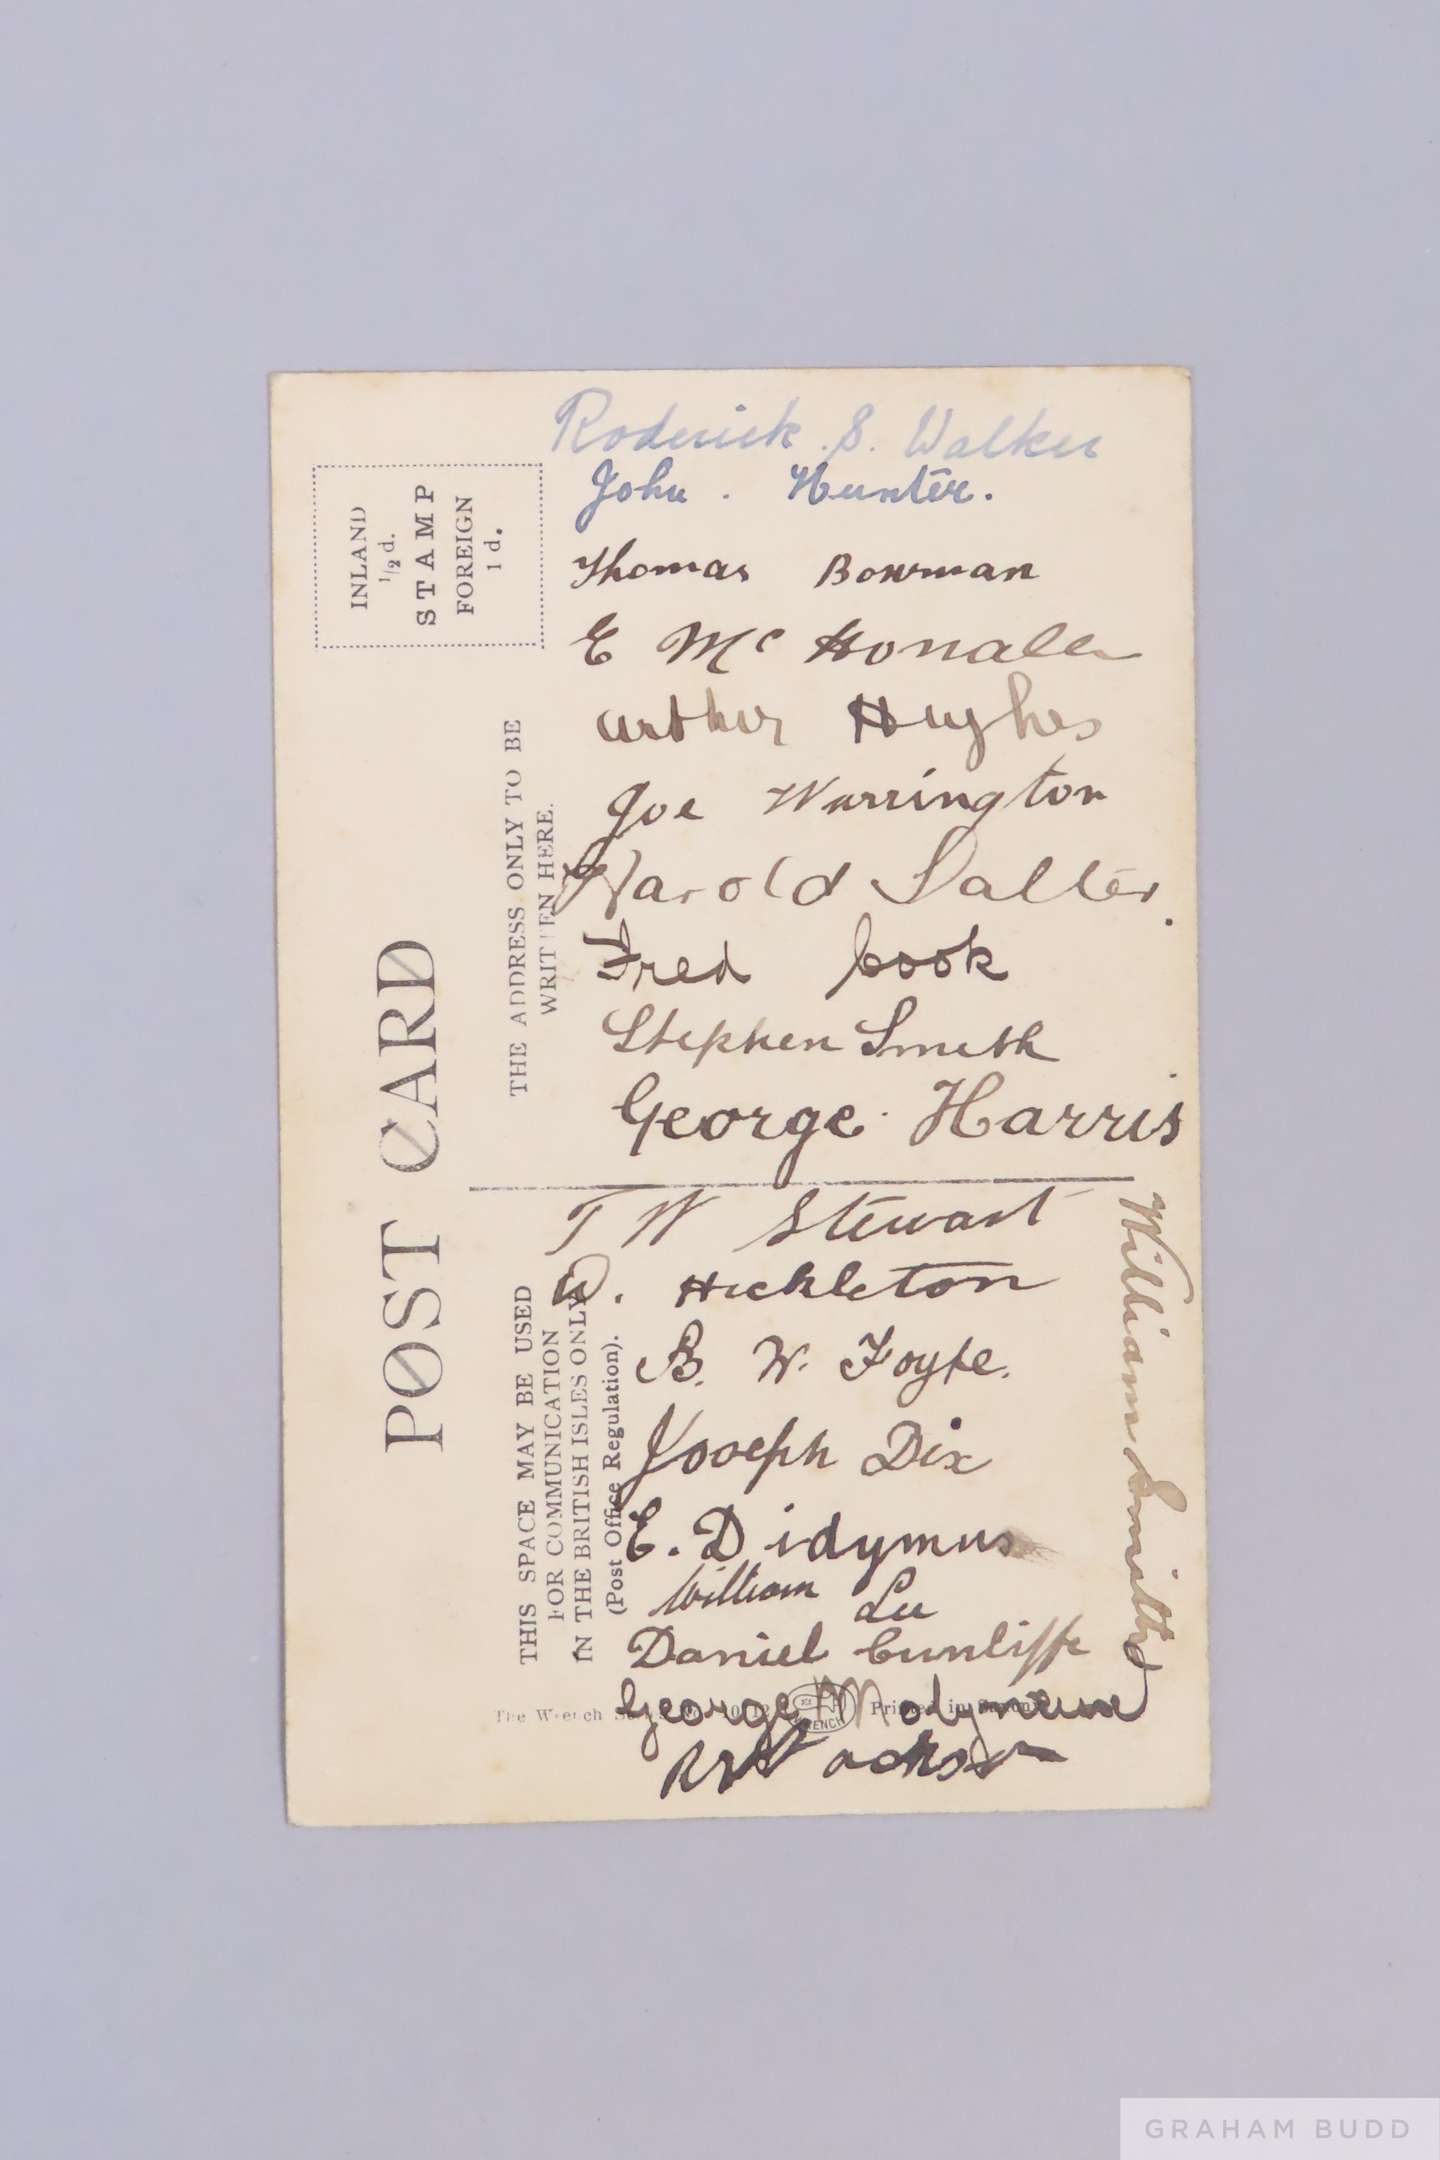 Roderick . S. Walker
John . Hunter.
Thomas Bowman
E Mc
Arthur Hughes
Joe Warrington
Harold Salter.
Fred Cook
Stephen Smith
George Harris
T W Stewart
W. Hickleton
B. W. Foyle.
Joseph Dix
E. Didymus
William Lee
Daniel Cunliffe
George Molyneux
William Smith
POST CARD
INLAND
1/2 d.
STAMP
FOREIGN
1 d.
THE ADDRESS ONLY TO BE
WRITTEN HERE.
THIS SPACE MAY BE USED
FOR COMMUNICATION
IN THE BRITISH ISLES ONLY
(Post Office Regulation).
The Wrench
WRENCH
Printed in Saxony
GRAHAM BUDD